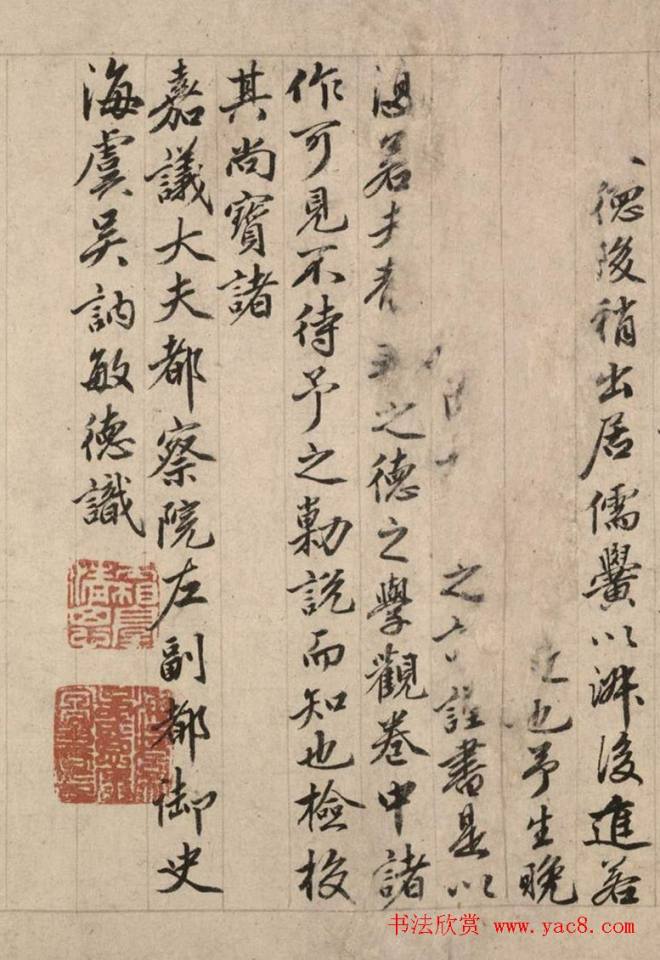 德後稍出居儒黌以淑後進若
也予生晚
之言謹書是以
若夫 之德之學觀卷中諸
作可見不待予之勦説而知也檢校
其尚寶諸
嘉議大夫都察院左副都御史
海虞吳訥敏德識
书法欣赏 www.yac8.com